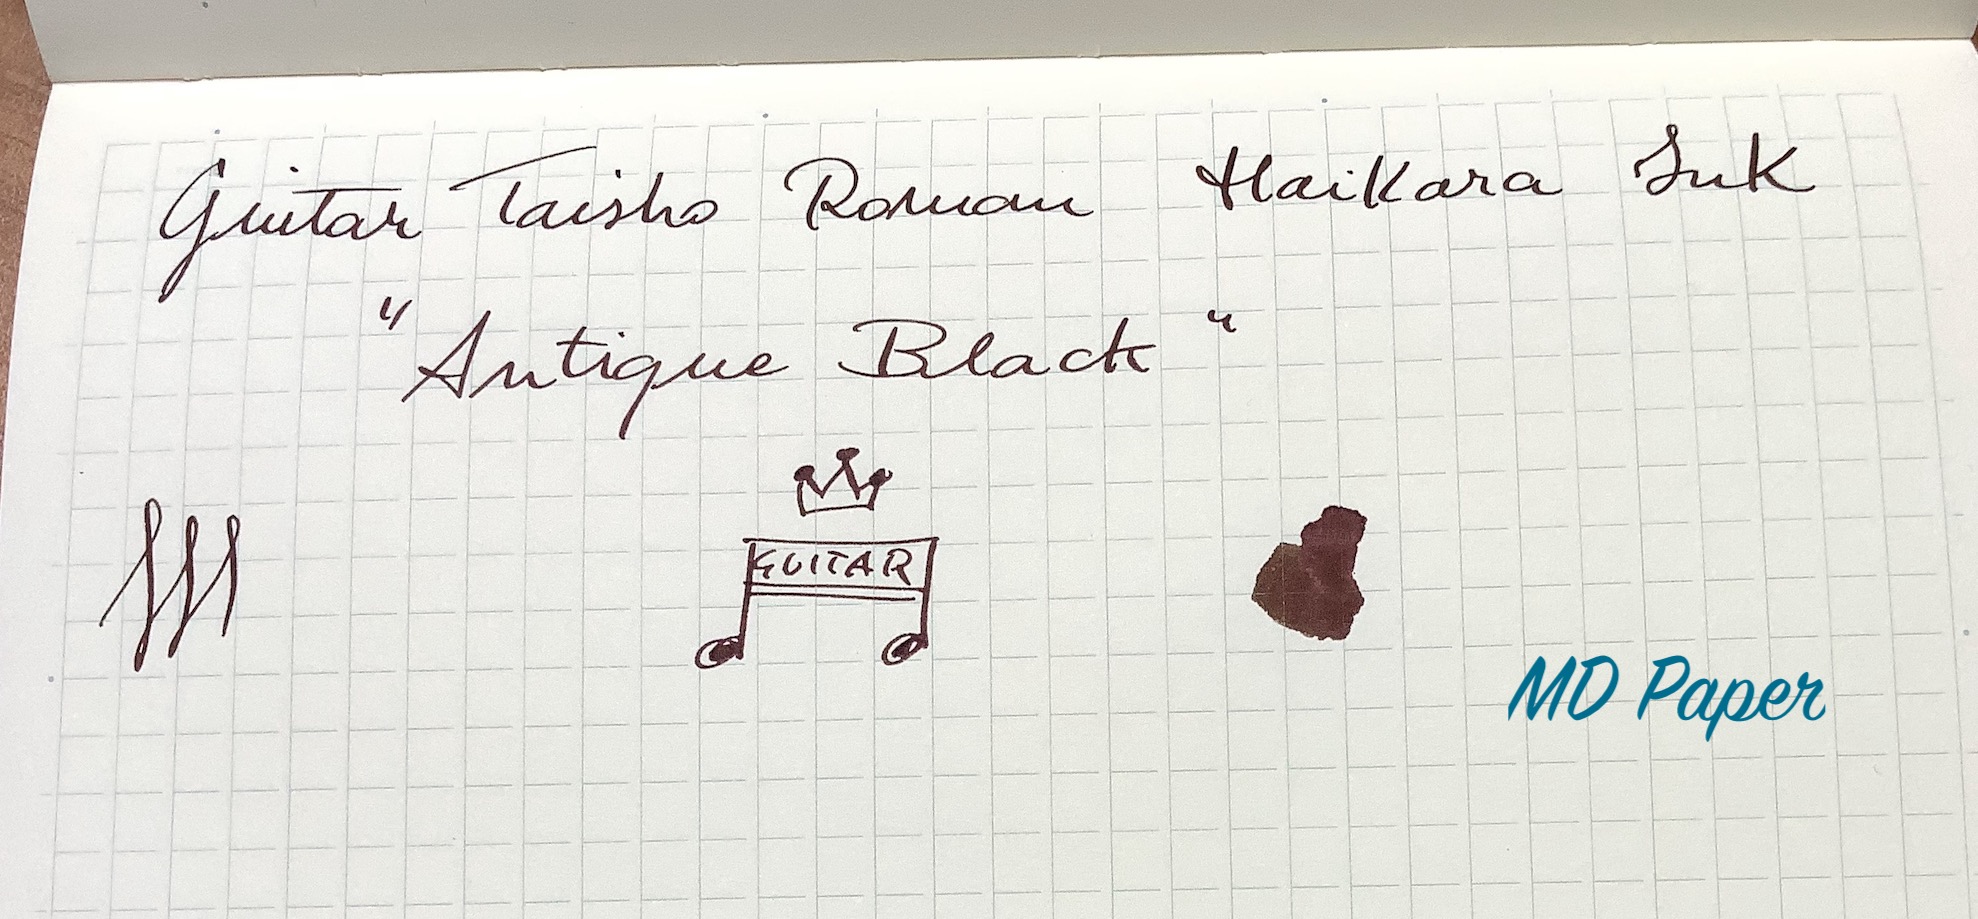 Guitar Taisho Roman Haikara Ink
"Antique Black"
GUITAR
MD Paper